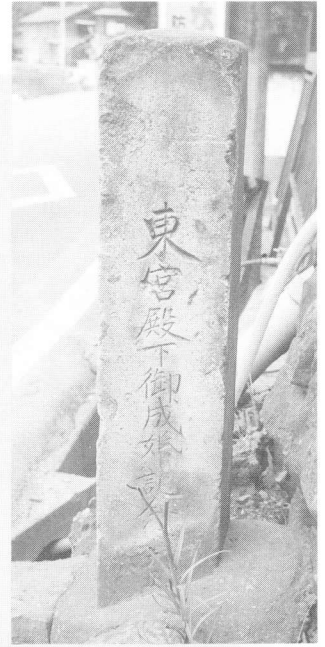 東宮殿下御成婚記